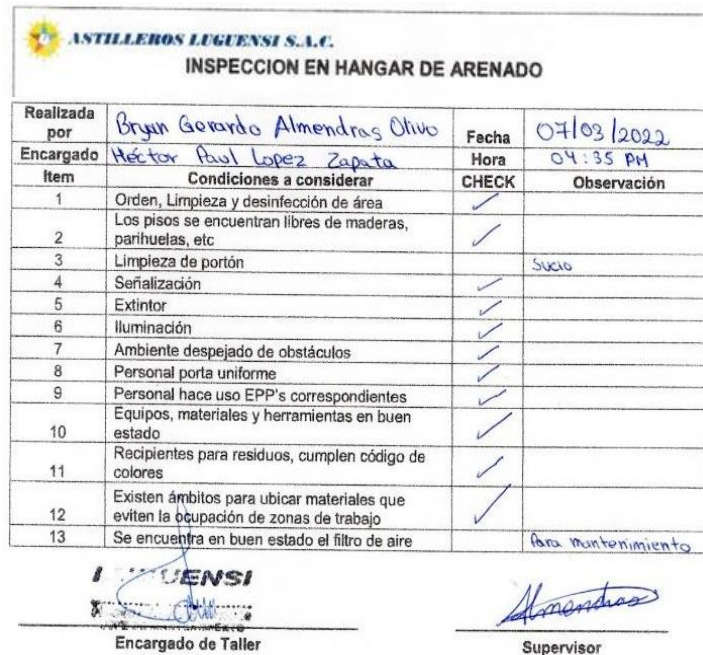 ASTILLEROS LUGUENSI S.A.C.
INSPECCION EN HANGAR DE ARENADO
Realizada por Bryan Gerardo Almendras Olivo Fecha 07/03/2022
Encargado Héctor Paul Lopez Zapata Hora 04:35 PM
Item Condiciones a considerar CHECK Observación
1 Orden, Limpieza y desinfección de área ✓
2 Los pisos se encuentran libres de maderas, parihuelas, etc ✓
3 Limpieza de portón Sucio
4 Señalización ✓
5 Extintor ✓
6 Iluminación ✓
7 Ambiente despejado de obstáculos ✓
8 Personal porta uniforme ✓
9 Personal hace uso EPP's correspondientes ✓
10 Equipos, materiales y herramientas en buen estado ✓
11 Recipientes para residuos, cumplen código de colores ✓
12 Existen ámbitos para ubicar materiales que eviten la ocupación de zonas de trabajo ✓
13 Se encuentra en buen estado el filtro de aire Para mantenimiento
UENSI
Almendras
Encargado de Taller Supervisor